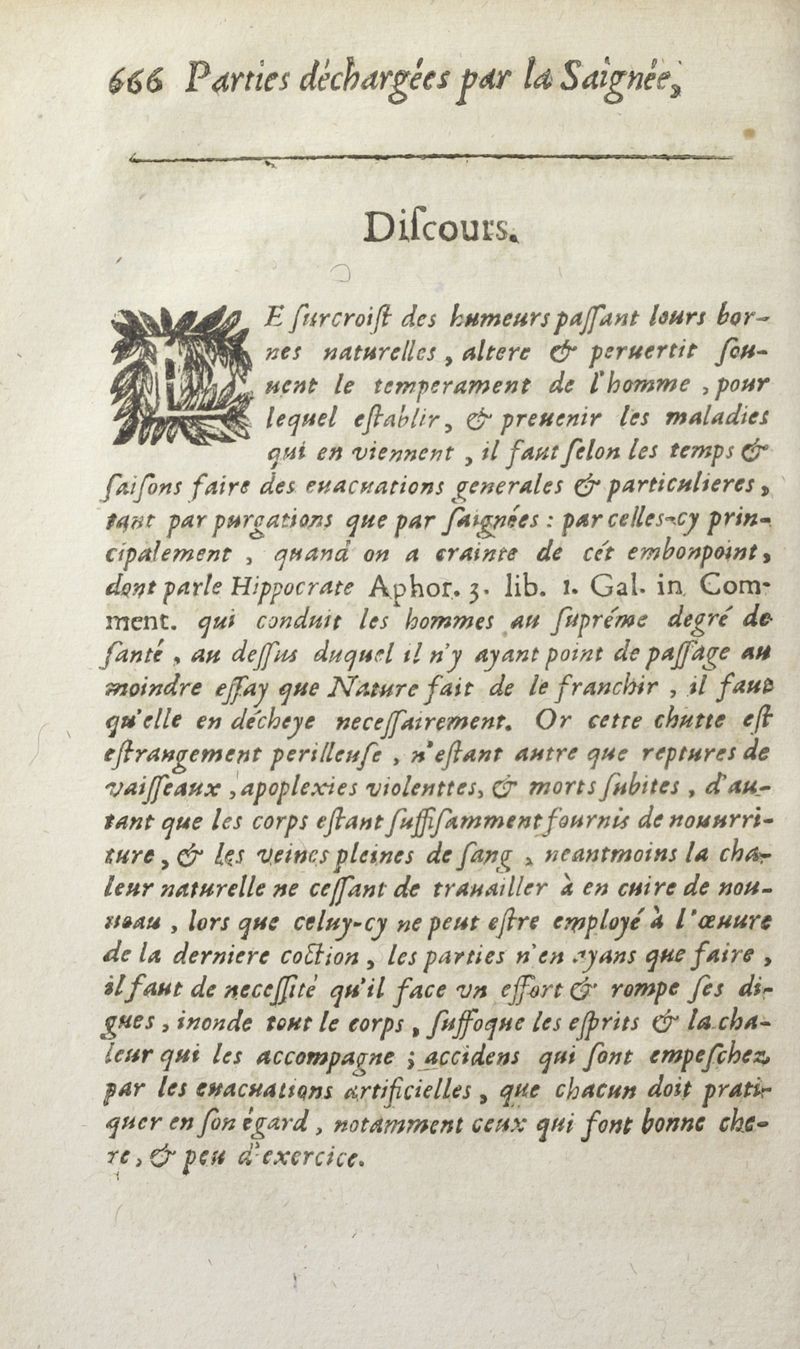 666 Parties déchargées par la Saignée,
Diſcours.
LE ſurcroiſt des humeurs paſſant leurs bor-
nes naturelles, altere & peruertit ſou-
uent le temperament de l'homme, pour
lequel eſtablir, & preuenir les maladies
qui en viennent, il faut ſelon les temps &
ſaiſons faire des euacuations generales & particulieres,
tant par purgations que par ſaignées : par celles-cy prin-
cipalement, quand on a crainte de cét embonpoint,
dont parle Hippocrate Aphor. 3. lib. 1. Gal. in Com-
ment. qui conduit les hommes au ſupréme degré de
ſanté, au deſſus duquel il n'y ayant point de paſſage au
moindre eſſay que Nature fait de le franchir, il faut
qu'elle en décheye neceſſairement. Or cette chutte eſt
eſtrangement perilleuſe, n'eſtant autre que reptures de
vaiſſeaux, apoplexies violenttes, & morts ſubites, d'au-
tant que les corps eſtant ſuffiſamment fournis de nouurri-
ture, & les veines pleines de ſang, neantmoins la cha-
leur naturelle ne ceſſant de trauailler à en cuire de nou-
ueau, lors que celuy-cy ne peut eſtre employé à l'œuure
de la derniere coction, les parties n'en ayans que faire,
il faut de neceſſité qu'il face vn effort & rompe ſes di-
gues, inonde tout le corps, ſuffoque les eſprits & la cha-
leur qui les accompagne ; accidens qui ſont empeſchez
par les euacuations artificielles, que chacun doit prati-
quer en ſon égard, notamment ceux qui font bonne che-
re, & peu d'exercice.